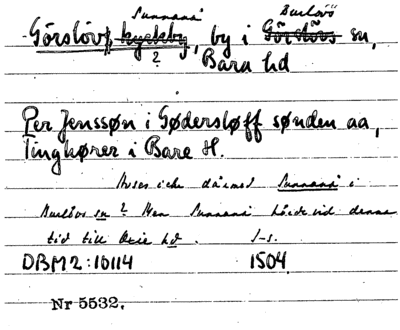 Sunnanå Burlövs
Görslövs kyrkby, by i Görslövs sn,
? Bara hd
Per Jenssøn i Gødersløff sønden aa,
Tinghører i Bare H.
Avses icke därmed Sunnanå i
Burlövs sn? Men Sunnanå hörde vid denna
tid till Oxie hd.
DBM2:10114 1504
Nr 5532.